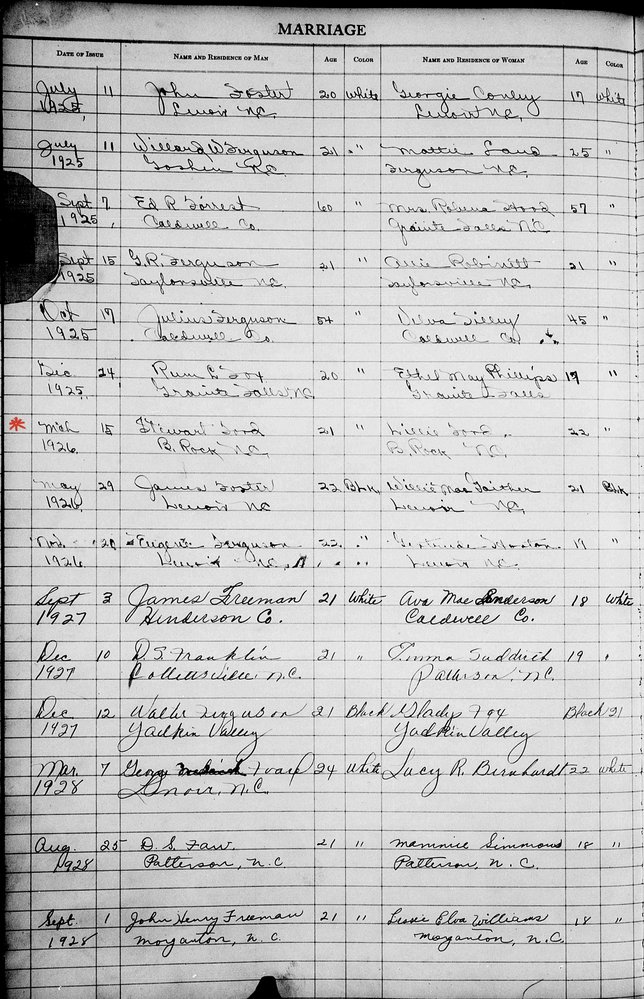 MARRIAGE
DATE OF ISSUE NAME AND RESIDENCE OF MAN AGE COLOR NAME AND RESIDENCE OF WOMAN AGE COLOR
July 11 John Foster 20 White Georgie Conley 17 White
1925, Lenoir N.C. Lenoir N.C.
July 11 Willard W Ferguson 21 " Mattie Land 25 "
1925 Goshen N.C. Ferguson N.C.
Sept 7 Ed R Forrest 60 " Mrs. Hood 57 "
1925, Caldwell Co. Granite Falls N.C.
Sept 15 G.R. Ferguson 21 " Allie Robinett 21 "
1925 Taylorsville N.C. Taylorsville N.C.
Oct 17 Julius Ferguson 54 " Tilley 45 "
1925 Caldwell Co. Caldwell Co.
Dec 24, Fox 20 " Ethel May Phillips 17 "
1925, Granite Falls N.C. Granite Falls
Mch 15 Stewart Ford 21 " Ford 22 "
1926 B. Rock N.C. B. Rock N.C.
May 29 James Foster 22 Blk Willie Mae Gaither 21 Blk
1926, Lenoir N.C. Lenoir N.C.
Nov. 20 Eugene Ferguson 22 " Gertrude "
1926 Lenoir N.C. Lenoir N.C.
Sept 3 James Freeman 21 White Ava Mae Anderson 18 White
1927 Henderson Co. Caldwell Co.
Dec 10 D.S. Franklin 21 " 19 "
1927 Collettsville, N.C. Patterson, N.C.
Dec 12 Walter Ferguson 21 Black Glady Fox Black 21
1927 Yadkin Valley Yadkin Valley
Mar. 7 George 24 White Lucy R. Bernhardt 22 White
1928 Lenoir, N.C.
Aug. 25 D. S. Faw. 21 " Mammie Simmons 18 "
1928 Patterson, N.C. Patterson, N.C.
Sept. 1 John Henry Freeman 21 " Lessie Elva Williams 18 "
1928 Morganton, N.C. Morganton, N.C.